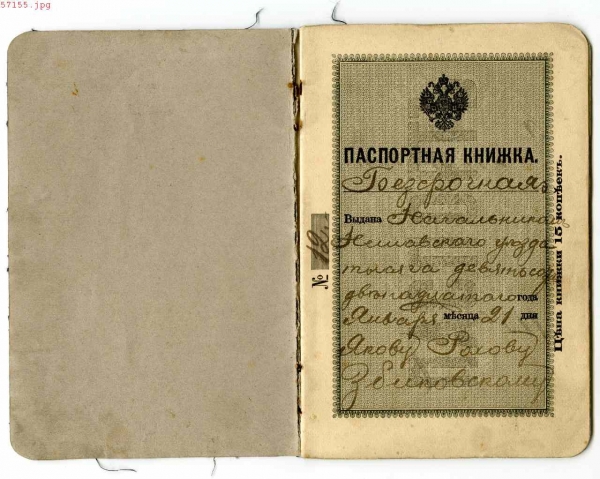 57155.jpg
ПАСПОРТНАЯ КНИЖКА.
Безсрочная
Выдана Начальникомъ
уѣзда
тысяча девятьсотъ
двѣнадцатаго года
Января мѣсяца 21 дня
Якову
Збиковскому
№
Цѣна книжки 15 копѣекъ.